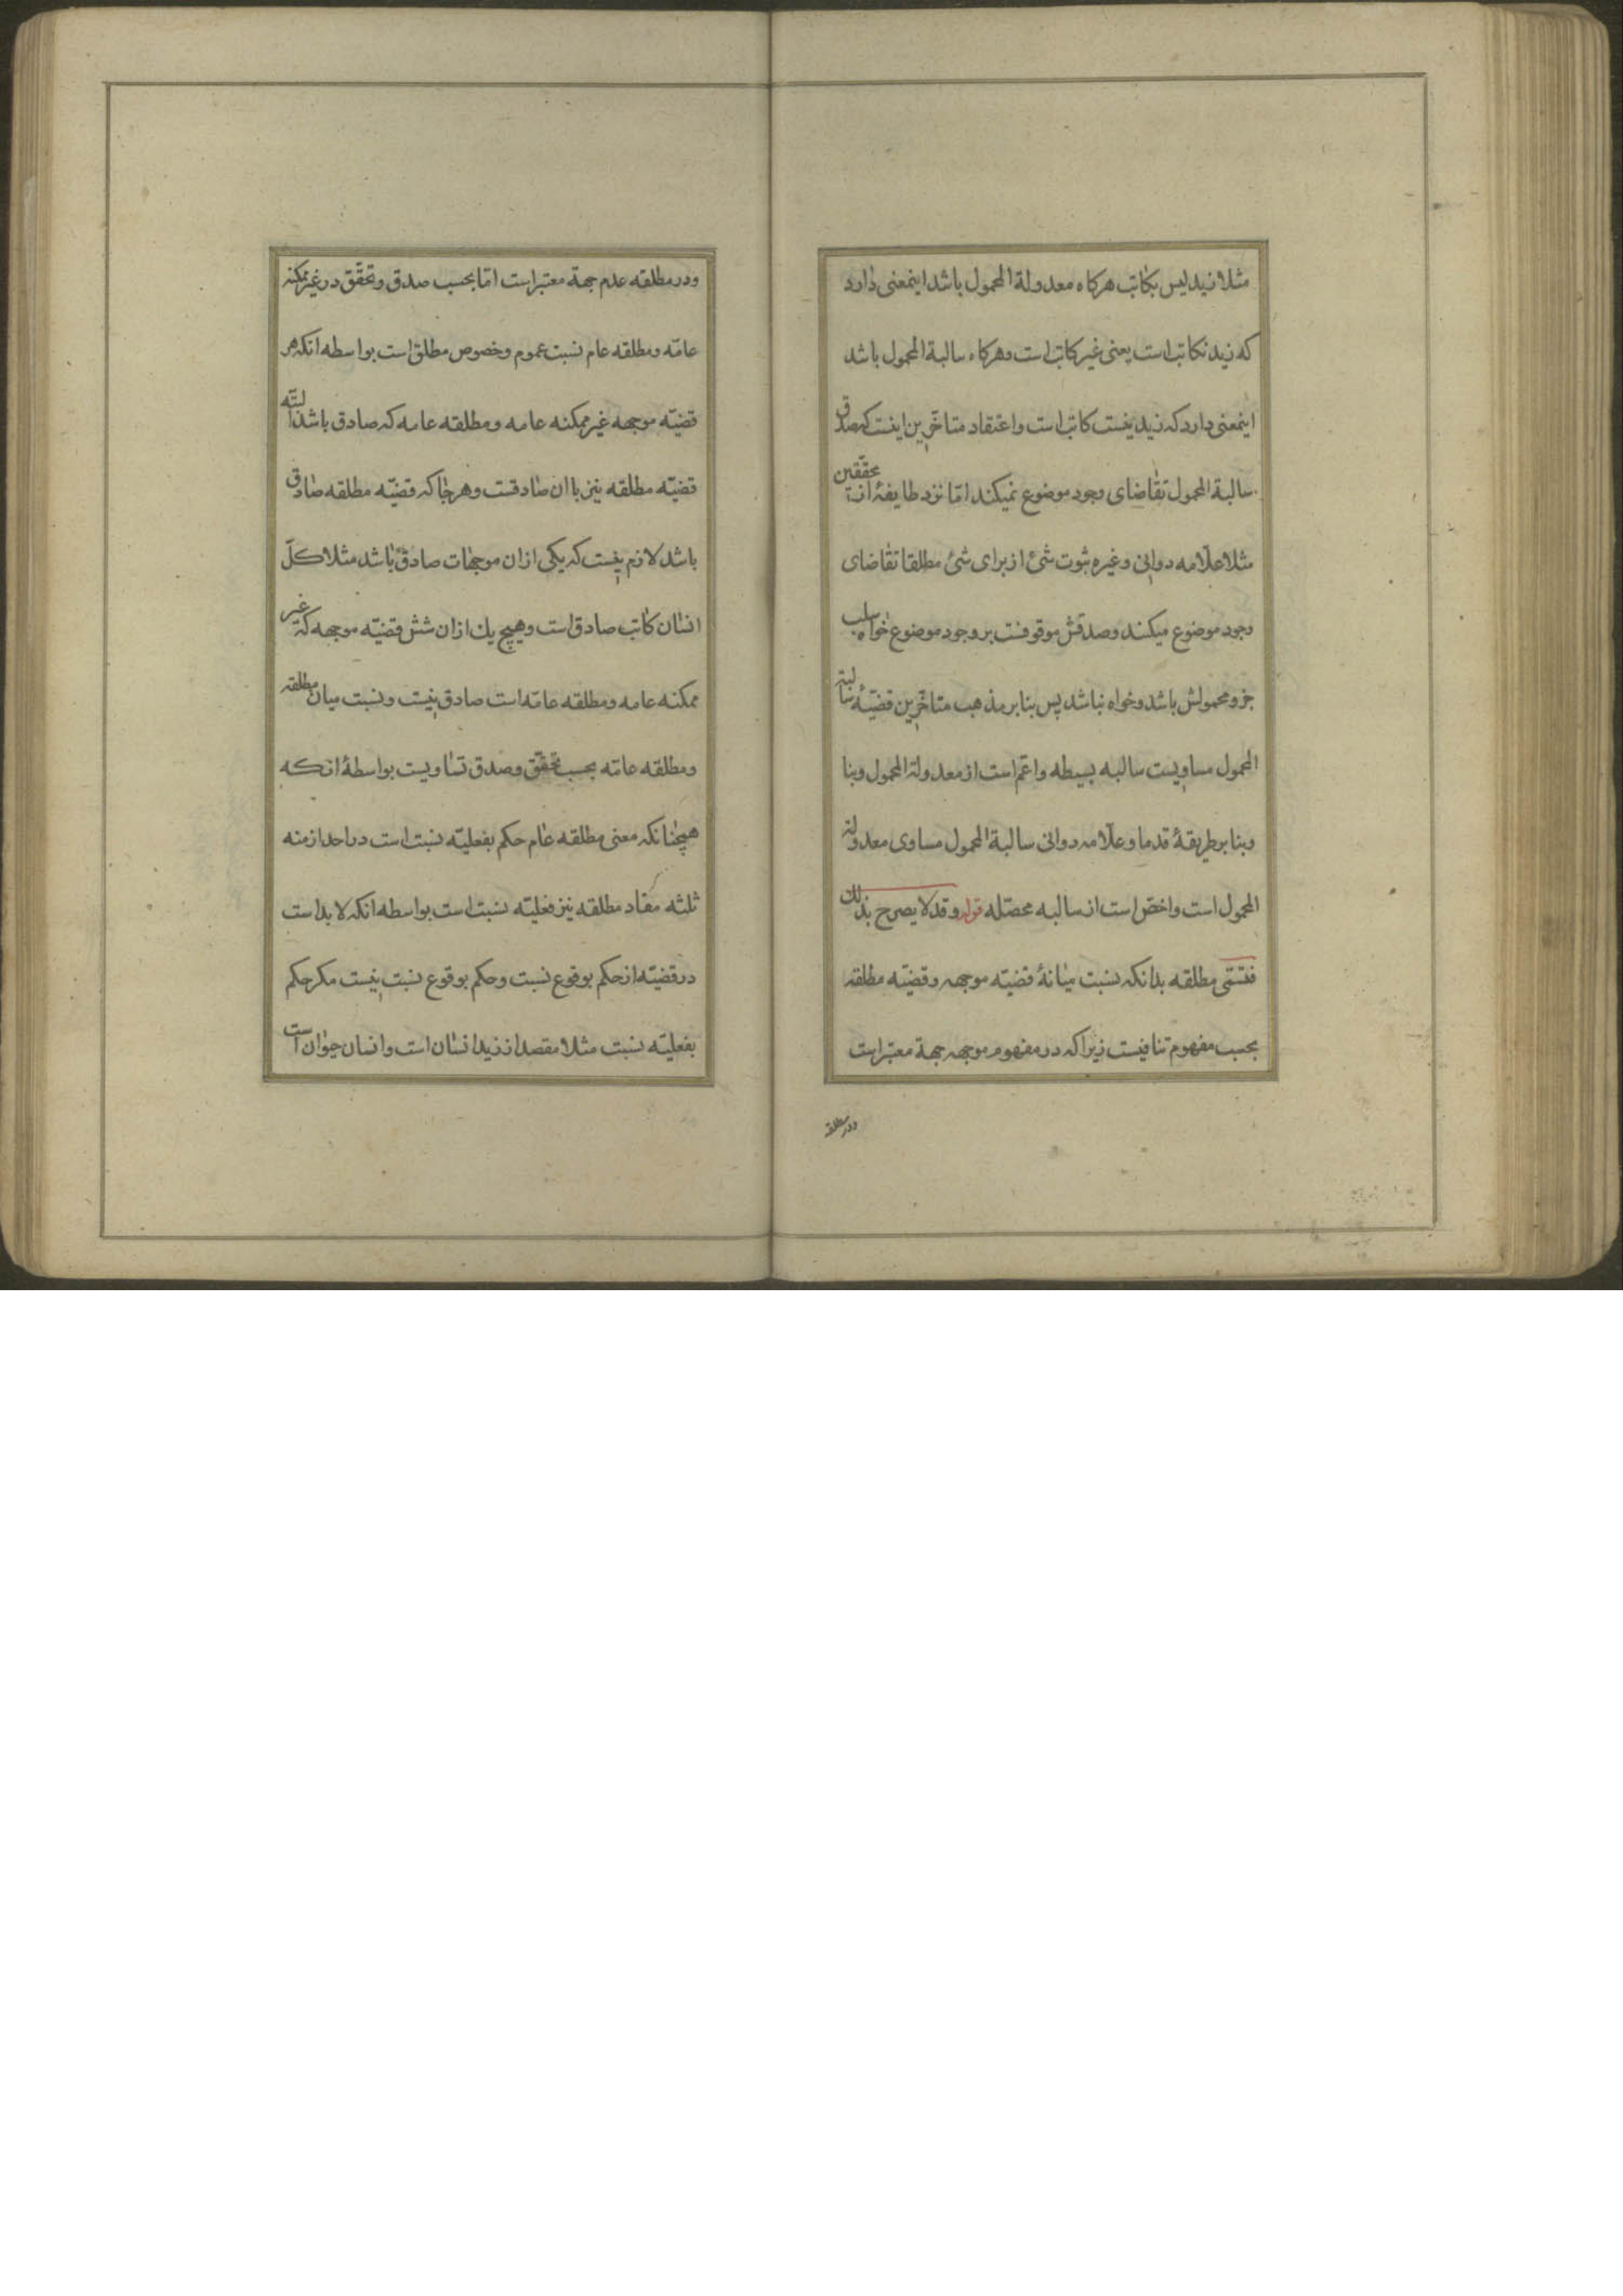 مثلا زید لیس بکاتب هرکاه معدولة المحمول باشد اینمعنی دارد
که زید نکاتب است یعنی غیر کاتب است وهرکاه سالبة المحمول باشد
اینمعنی دارد که زید نیست کاتب است واعتقاد متاخّرین اینست که صدق
سالبة المحمول تقاضای وجود موضوع نمیکند امّا نزد طایفهٔ از محقّقین
مثلا علّامه دوانی وغیره ثبوت شئ از برای شئ مطلقا تقاضای
وجود موضوع میکند وصدقش موقوفست بر وجود موضوع خواه سلب
جزو محمولش باشد وخواه نباشد پس بنابر مذهب متاخّرین قضیّهٔ سالبة
المحمول مساویست سالبه بسیطه واعمّ است از معدولة المحمول وبنا
وبنابر طریقهٔ قدما وعلّامه دوانی سالبة المحمول مساوی معدولة
المحمول است واخصّ است از سالبه محصّله قوله وقد لا یصرح بذلک
فتسمّی مطلقه بدانکه نسبت میانهٔ قضیّه موجهه وقضیّه مطلقه
بحسب مفهوم تنافیست زیرا که در مفهوم موجهه جهة معتبر است
ودر مطلقه
ودر مطلقه عدم جهة معتبر است امّا بحسب صدق وتحقّق در غیر ممکنه
عامّه ومطلقه عام نسبت عموم وخصوص مطلق است بواسطه انکه هر
قضیّه موجهه غیر ممکنه عامه ومطلقه عامه که صادق باشد البتّه
قضیّه مطلقه نیز با ان صادقست وهر جا که قضیّه مطلقه صادق
باشد لازم نیست که یکی از ان موجهات صادق باشد مثلا کلّ
انسان کاتب صادق است وهیچ یک از ان شش قضیّه موجهه که غیر
ممکنه عامه ومطلقه عامّه است صادق نیست ونسبت میان مطلقه
ومطلقه عامّه بحسب تحقّق وصدق تساویست بواسطهٔ انکه
همچنانکه معنی مطلقه عام حکم بفعلیّه نسبت است در احد ازمنه
ثلثه مفاد مطلقه نیز فعلیّه نسبت است بواسطه انکه لابد است
در قضیّه از حکم بوقوع نسبت وحکم بوقوع نسبت نیست مکر حکم
بفعلیّه نسبت مثلا مقصد از زید انسان است وانسان حیوان است